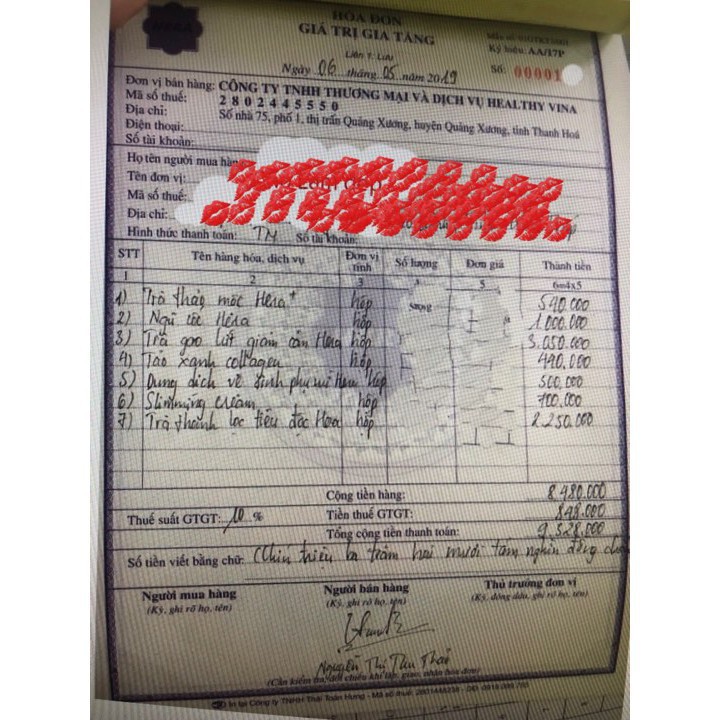 HÓA ĐƠN
GIÁ TRỊ GIA TĂNG
Liên 1: Lưu
Ký hiệu: AA/17P
Số: 00001
Ngày 06 tháng 05 năm 2019
Đơn vị bán hàng: CÔNG TY TNHH THƯƠNG MẠI VÀ DỊCH VỤ HEALTHY VINA
Mã số thuế: 2802445550
Địa chỉ: Số nhà 75, phố 1, thị trấn Quảng Xương, huyện Quảng Xương, tỉnh Thanh Hoá
Điện thoại:
Số tài khoản:
Họ tên người mua hàng
Tên đơn vị:
Mã số thuế:
Địa chỉ:
Hình thức thanh toán: TM Số tài khoản:
STT Tên hàng hóa, dịch vụ Đơn vị tính Số lượng Đơn giá Thành tiền
1 2 3 5 6=4x5
1) Trà thảo mộc Hera+ hộp 590.000
2) Ngũ cốc Hera hộp 1.000.000
3) Trà gạo lứt giảm cân Hera hộp 3.050.000
4) Tảo xanh collagen hộp 490.000
5) Dung dịch vệ sinh phụ nữ Hera hộp 500.000
6) Slimming cream hộp 700.000
7) Trà thanh lọc tiêu độc Hera hộp 2.250.000
Cộng tiền hàng: 8.480.000
Thuế suất GTGT: 10 % Tiền thuế GTGT: 848.000
Tổng cộng tiền thanh toán: 9.328.000
Số tiền viết bằng chữ: Chín triệu ba trăm hai mươi tám nghìn đồng
Người mua hàng Người bán hàng Thủ trưởng đơn vị
(Ký, ghi rõ họ, tên) (Ký, ghi rõ họ, tên) (Ký, đóng dấu, ghi rõ họ, tên)
Nguyễn Thị Thu Thảo
(Cần kiểm tra, đối chiếu khi lập, giao, nhận hóa đơn)
In tại Công ty TNHH Thái Toàn Hưng - Mã số thuế: 2801448238